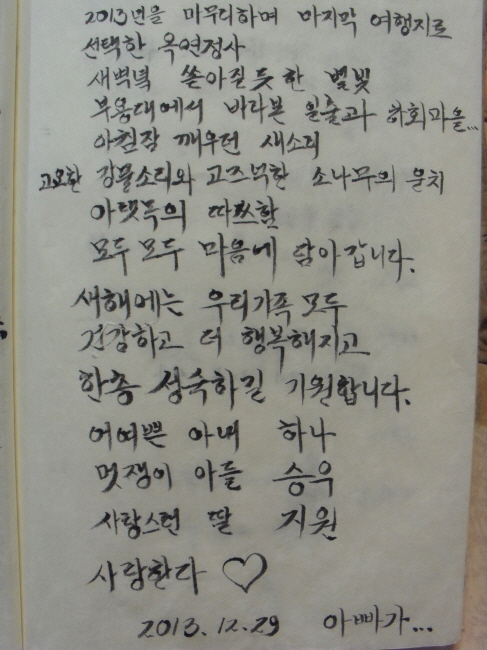 2013년을 마무리하며 마지막 여행지로
선택한 옥연정사
새벽녘 쏟아질듯한 별빛
부용대에서 바라본 일출과 하회마을...
아침잠 깨우던 새소리
고요한 강물소리와 고즈넉한 소나무의 운치
아랫목의 따뜻함
모두 모두 마음에 담아갑니다.
새해에는 우리가족 모두
건강하고 더 행복해지고
한층 성숙하길 기원합니다.
어여쁜 아내 하나
멋쟁이 아들 승우
사랑스런 딸 지원
사랑한다 ♡
2013.12.29 아빠가...